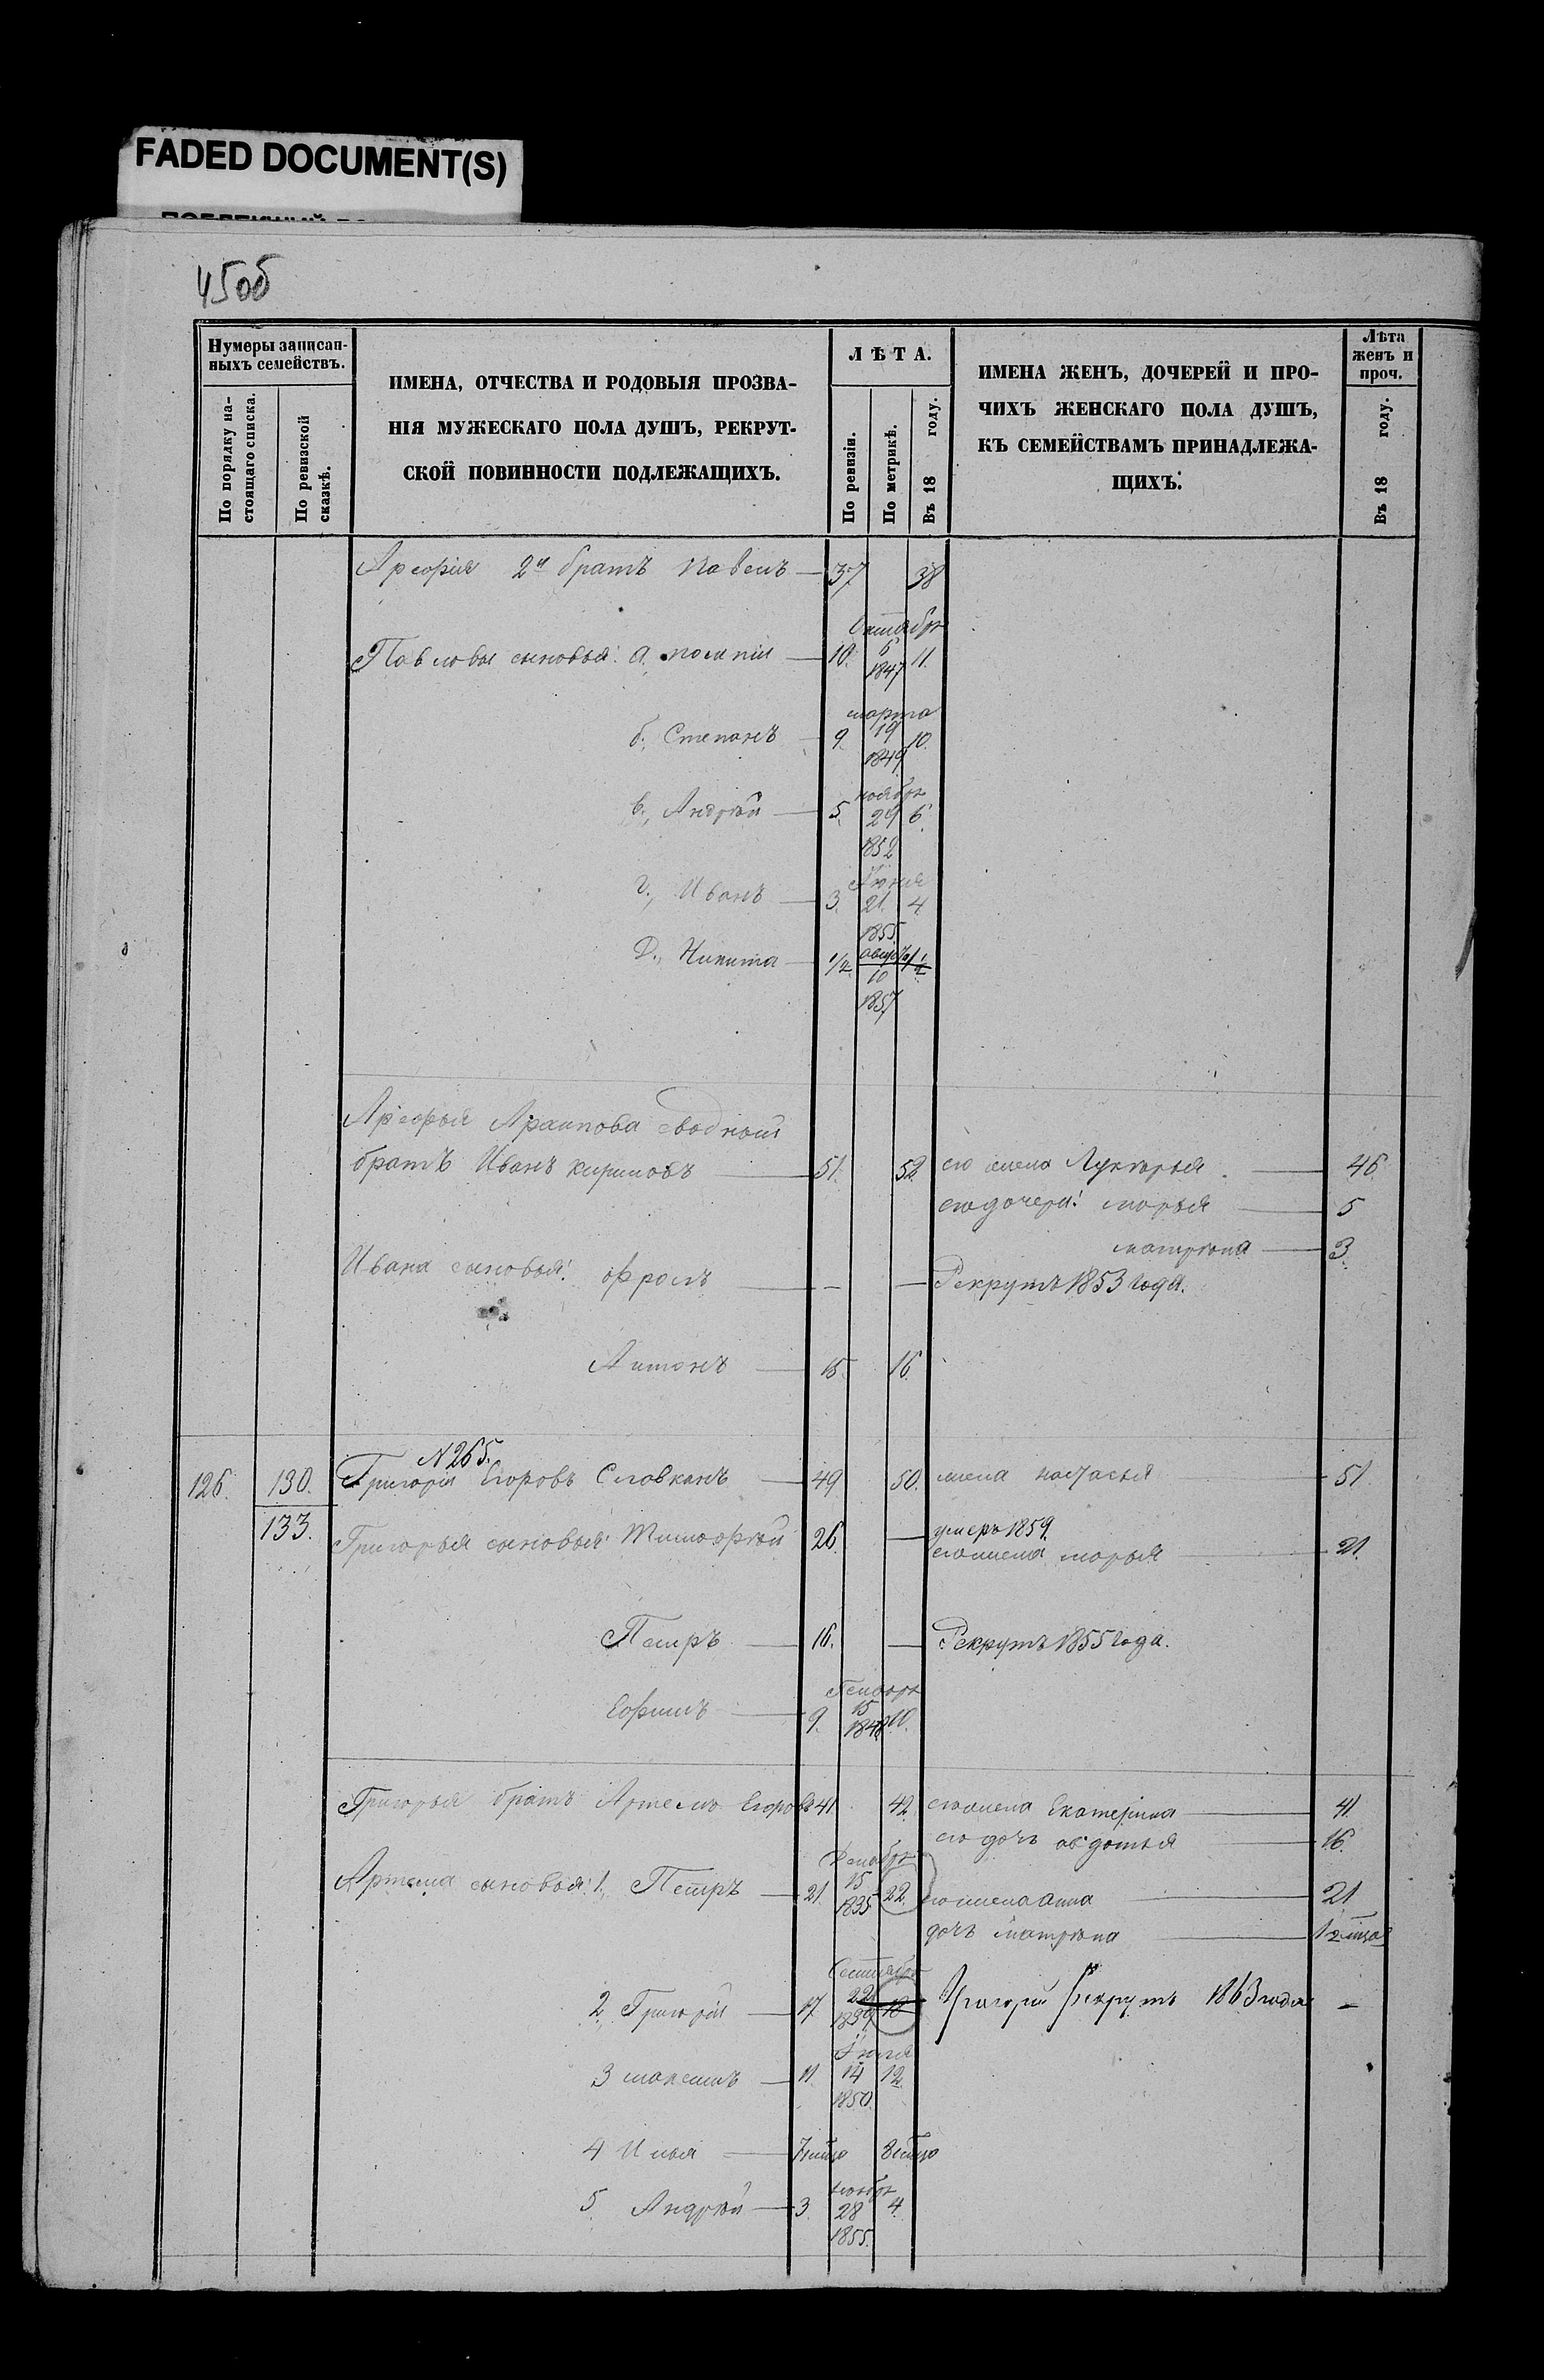 FADED DOCUMENT(S)
45об
Нумеры записан-
ныхъ семействъ.
По порядку на-
стоящаго списка.
По ревизской
сказкѣ.
ИМЕНА, ОТЧЕСТВА И РОДОВЫЯ ПРОЗВА-
НІЯ МУЖЕСКАГО ПОЛА ДУШЪ, РЕКРУТ-
СКОЙ ПОВИННОСТИ ПОДЛЕЖАЩИХЪ.
ЛѢТА.
По ревизіи.
По метрикѣ.
Въ 18 году.
ИМЕНА ЖЕНЪ, ДОЧЕРЕЙ И ПРО-
ЧИХЪ ЖЕНСКАГО ПОЛА ДУШЪ,
КЪ СЕМЕЙСТВАМЪ ПРИНАДЛЕЖА-
ЩИХЪ.
Лѣта
женъ и
проч.
Въ 18 году.
2й братъ Павелъ 37 38
Октября
Павловы сыновья: а. 10. 6 11.
1847
марта
б., Степанъ 9. 19 10.
1849
ноября
в., Андрѣй 5. 29 6.
1852
Іюня
г., Иванъ 3. 21. 4
1855
августа
д., Никита 1/2 10 1/2
1857
сводный
братъ Иванъ 51. 52. его жена Лукерья 46.
его дочери: марья 5
матрена 3.
Ивана сыновья: Фролъ — — Рекрутъ 1853 года.
Антонъ 15. 16.
N 265.
126. 130. Григорій Егоровъ Словканъ 49 50. жена настасья 51
133. Григорья сыновья: Тимофѣй 26. — умеръ 1859.
его жена марья 21.
Петръ 16. — Рекрутъ 1855 года.
Генваря
Ефимъ 9. 15 10.
1848
Григорья братъ Артемъ Егоровъ 41. 42. его жена Екатерина 41.
его дочь авдотья 16.
Декабря
Артема сыновья: 1., Петръ 21. 15 22. его жена анна 21
1835
дочь матрена
Сентября
2., Григорій 17. 22 18 Григорій Рекрутъ 1863 года —
1839
Іюля
3 максимъ 11. 14 12.
1850.
4 Илья
ноября
5. Андрѣй 3. 28 4.
1855.